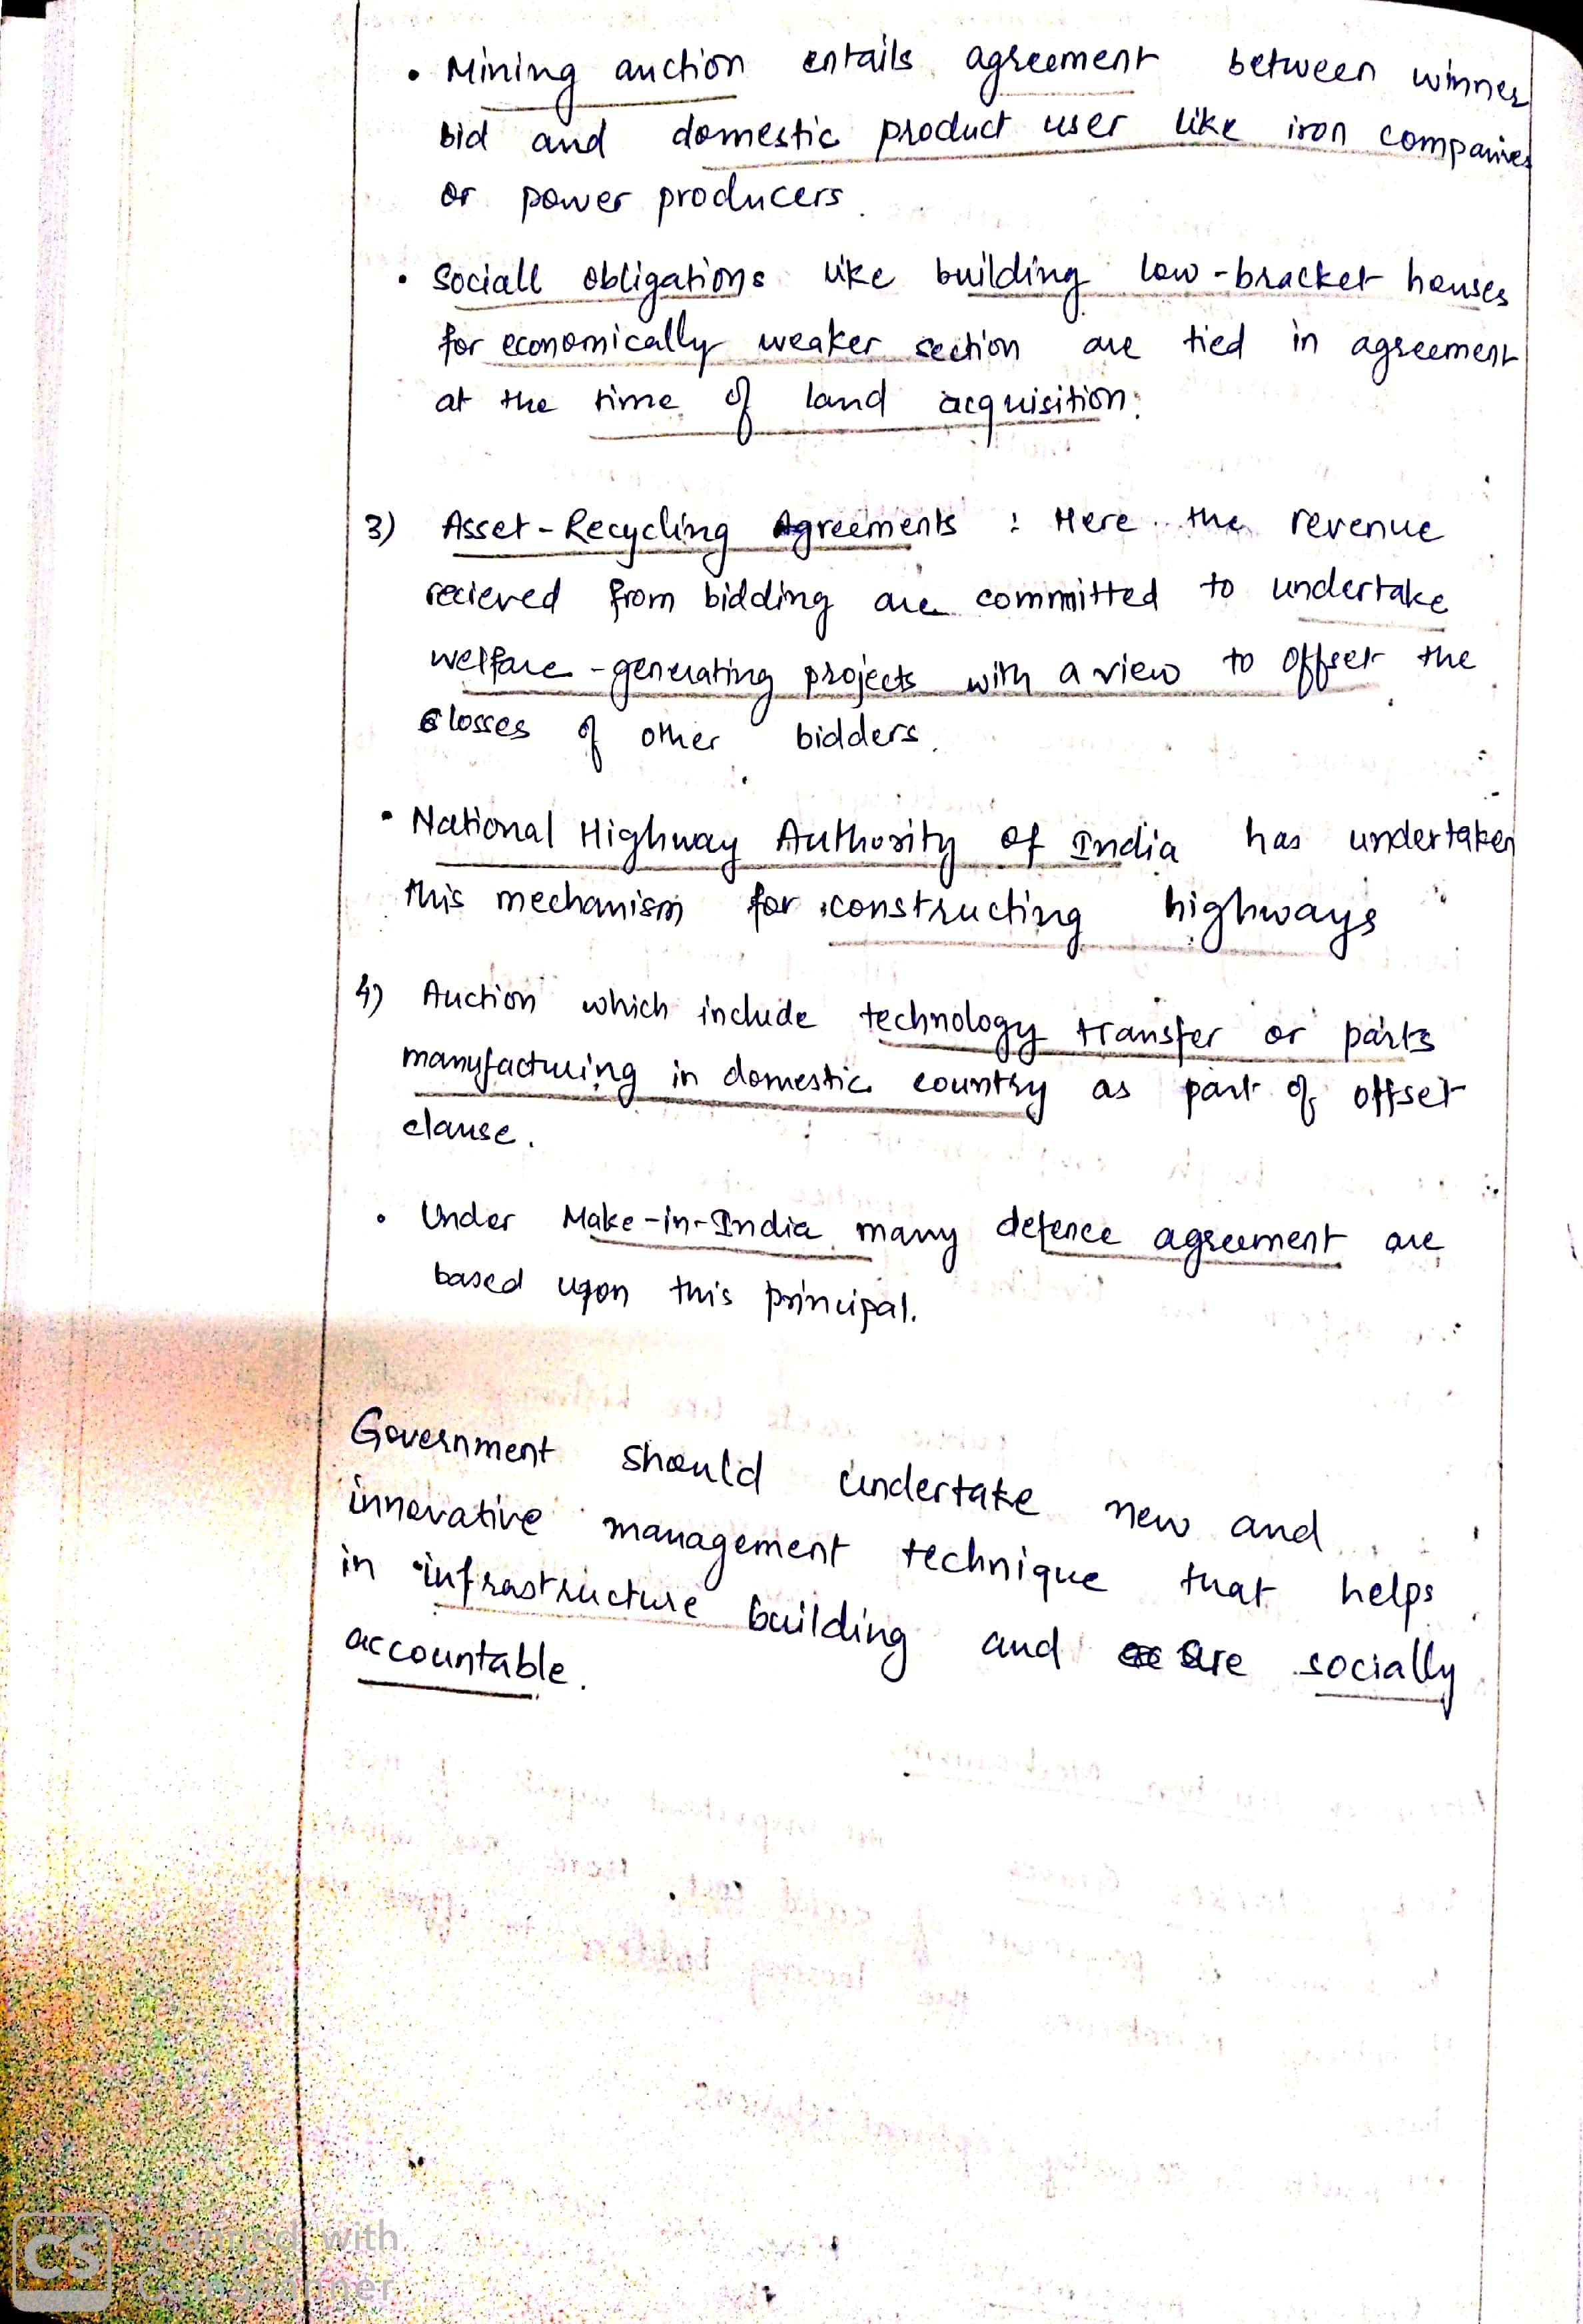 • Mining auction entails agreement between winner
bid and domestic product user like iron companies
or power producers.
• Sociall obligations like building low-bracket houses
for economically weaker section are tied in agreement
at the time of land acquisition.
3) Asset-Recycling Agreements : Here the revenue
recieved from bidding are committed to undertake
welfare-generating projects with a view to offset the
losses of other bidders.
• National Highway Authority of India has undertaken
this mechanism for constructing highways
4) Auction which include technology transfer or parts
manufacturing in domestic country as part of offset
clause.
• Under Make-in-India many defence agreement are
based upon this principal.
Government should undertake new and
innovative management technique that helps
in infrastructure building and are socially
accountable.
CS Scanned with
CamScanner